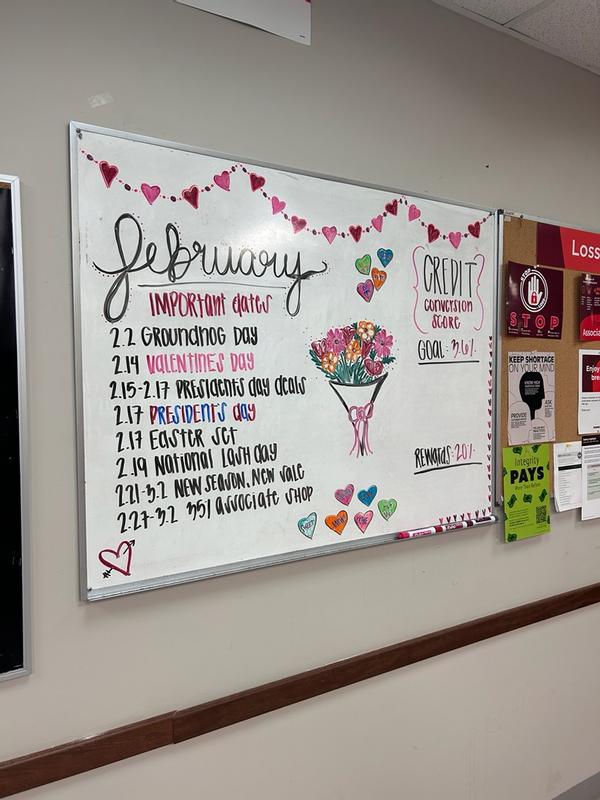 february
IMPORTANT dates
2.2 GROUNDHOG DAY
2.14 VALENTINES DAY
2.15-2.17 PRESIDENTS DAY DEALS
2.17 PRESIDENTS day
2.17 EASTER SET
2.19 NATIONAL LASH DAY
2.21-3.2 NEW SEASON, NEW SALE
2.27-3.2 351 ASSOCIATE SHOP
CREDIT
CONVERSION
SCORE
GOAL: 3.6%
REWARDS: 20%
Loss
STOP
KEEP SHORTAGE
ON YOUR MIND
PROVIDE
ASK
Integrity
PAYS
Associa
Enjoy
brea